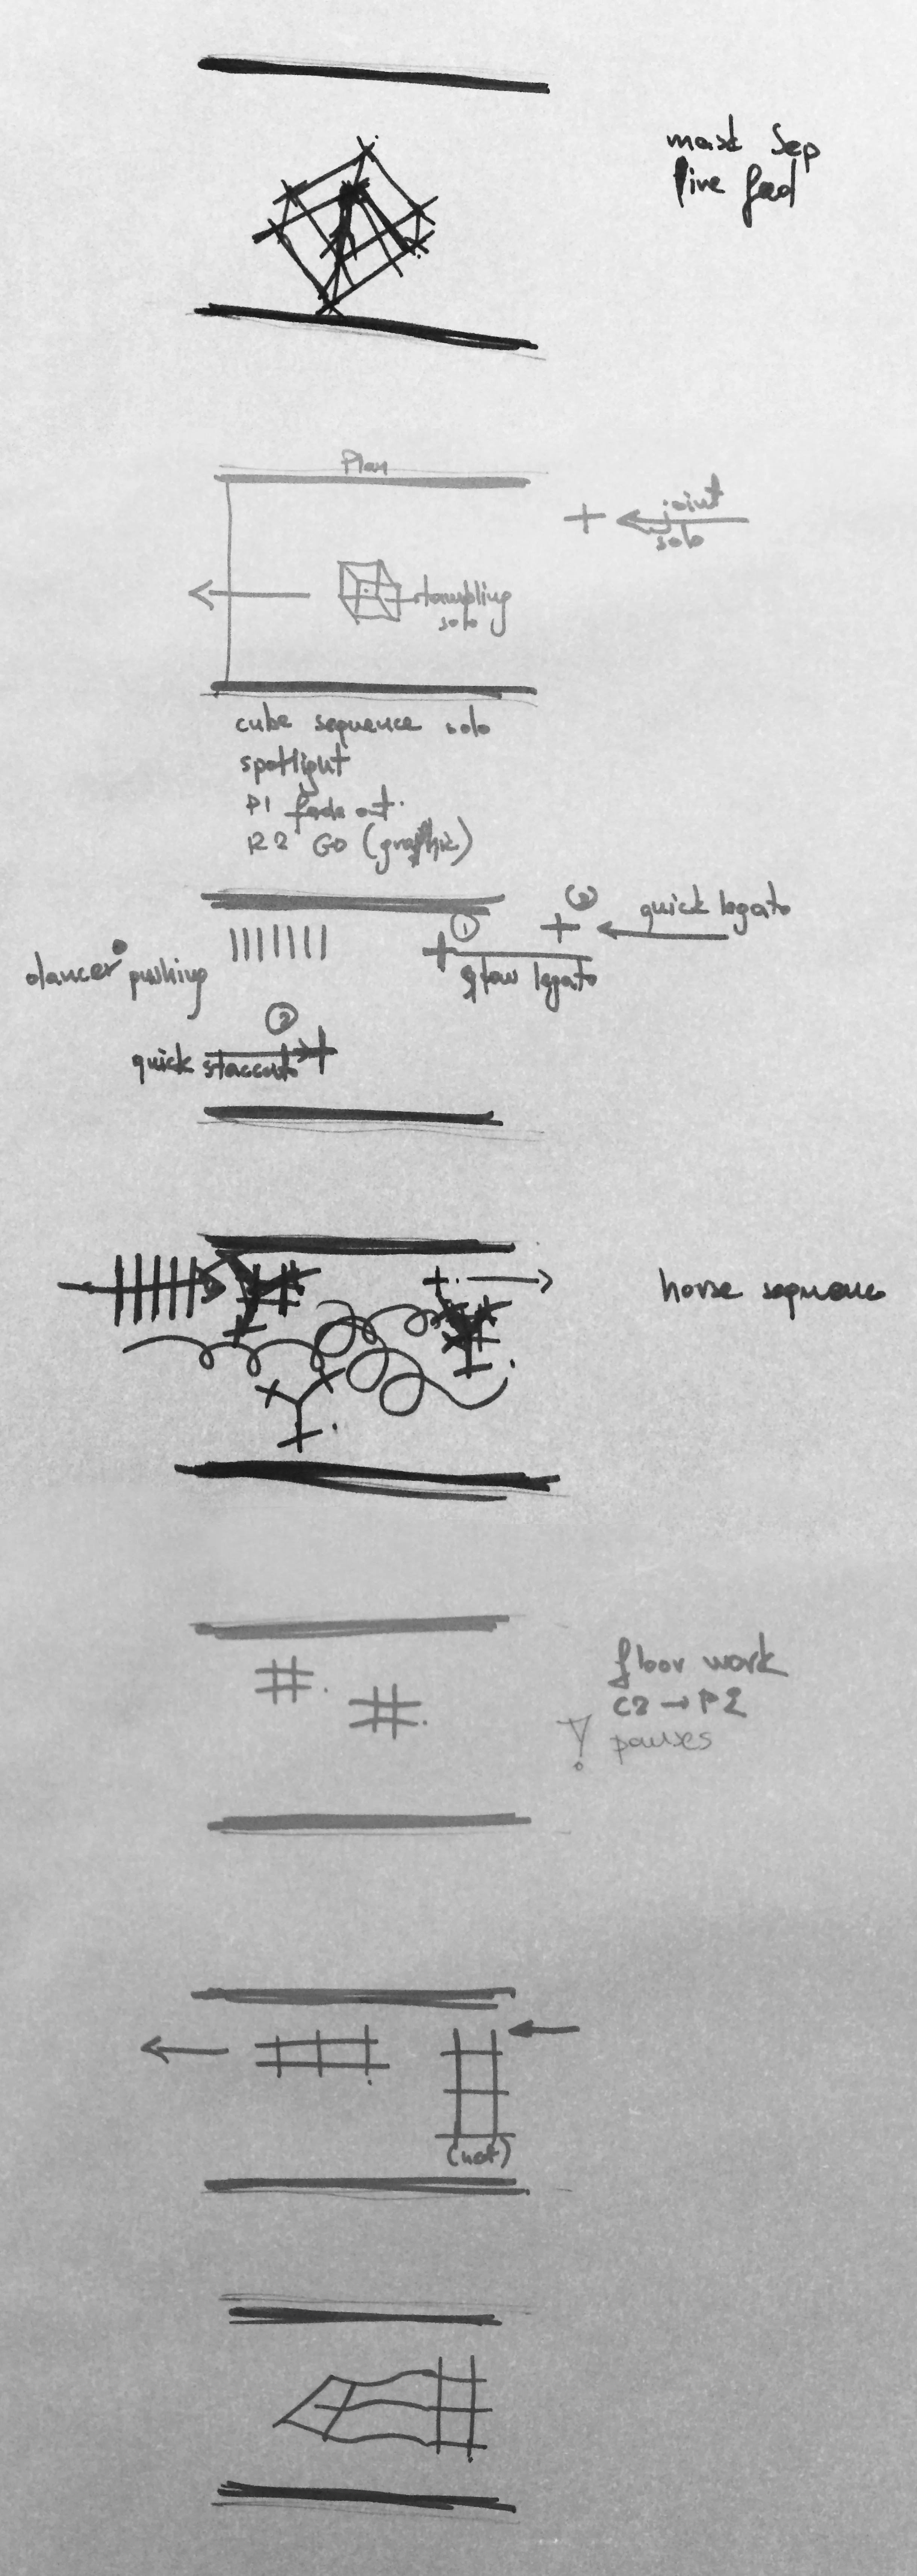 live feed
Plan
joint
solo
solo
cube sequence solo
spotlight
P1 fade out.
GO (graphic)
③
quick legato
①
slow legato
dancer pushing
②
quick staccato
horse sequence
floor work
C2 → P2
! pauses
(net)